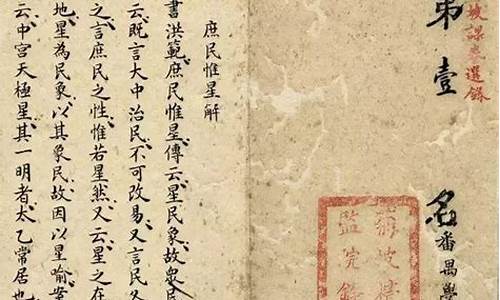 菊坡課卷選錄
第壹名
番禺學
菊坡精
監院錄
庶民惟星解
書洪範庶民惟星傳云星民象故眾民
云既言大中治民不可改易又言民各
之言庶民之性惟若星然又云星之在
地星為民象以其象民故因以星喻案
云中宮天極星其一明者太乙常居也